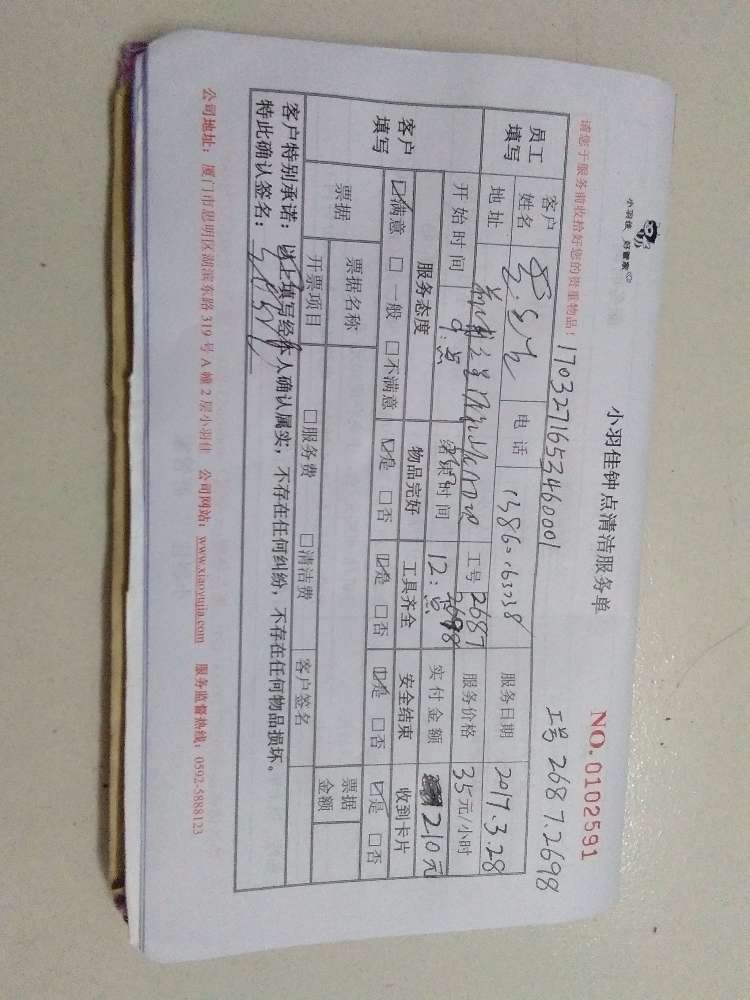 小羽佳 好管家
小羽佳钟点清洁服务单
NO.0102591
工号 2687.2698
请您于服务前收拾好您的贵重物品！
1703271653460001
员工填写 客户姓名 电话 服务日期 2017.3.28
地址 工号 2687 2698 服务价格 35元/小时
开始时间 9:点 结束时间 12:点 实付金额 210元
客户填写 服务态度 物品完好 工具齐全 安全结束 收到卡片
☑满意 □一般 □不满意 ☑是 □否 ☑是 □否 ☑是 □否 ☑是 □否
票据 票据名称 客户签名 票据金额
开票项目 □服务费 □清洁费
客户特别承诺：以上填写经本人确认属实，不存在任何纠纷，不存在任何物品损坏。
特此确认签名：
公司地址：厦门市思明区湖滨东路 319 号 A 幢 2 层小羽佳 公司网站：www.xiaoyujia.com 服务监督热线：0592-5888123